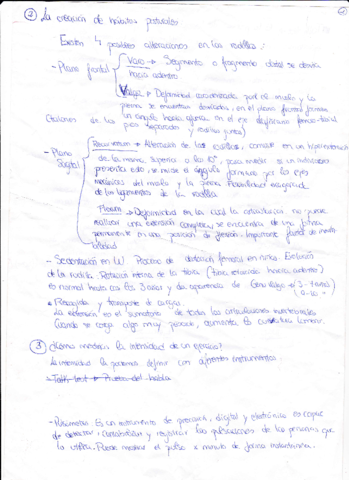 ② La creación de hábitos posturales
Existen 4 posibles alteraciones en las rodillas:
- Plano frontal
Varo → Segmento o fragmento distal se desvía
hacia adentro
Valgo → Deformidad caracterizada por el muslo y la
pierna se encuentran desviadas, en el plano frontal forman
un ángulo hacia afuera, en el eje diafisario femoro-tibial
(talones de los pies separados y rodillas juntas)
- Plano Sagital
Recurvatum → Alteración de las rodillas, consiste en un hiperextensión
de la misma, superior a los
presenta esto, se mide el ángulo formado por los ejes
mecánicos del muslo y la pierna. Flexibilidad exagerada
de los ligamentos de la rodilla
Flexum → Deformidad en la cual la articulación no puede
realizar una extensión completa y se encuentra de una forma
permanente en una posición de flexión. Importante factor de
- Sedentación en W. Proceso de
de la rodilla. Rotación interna de la tibia (
es normal hasta los 3 años y da apariencia de Genu Valgo
* Recogida y transporte de cargas
La extensión es el sumatorio de todas las articulaciones vertebrales
Cuando se carga algo muy pesado, aumenta la curvatura lumbar.
③ ¿Cómo medirías la intensidad de un ejercicio?
La intensidad la podemos definir con diferentes instrumentos
- Talk test → Prueba del habla
- Pulsómetro. Es un instrumento de precisión, digital y electrónico es capaz
de detectar, contabilizar y registrar las pulsaciones de las personas que
lo utiliza. Puede mostrar el pulso x minuto de forma instantánea.